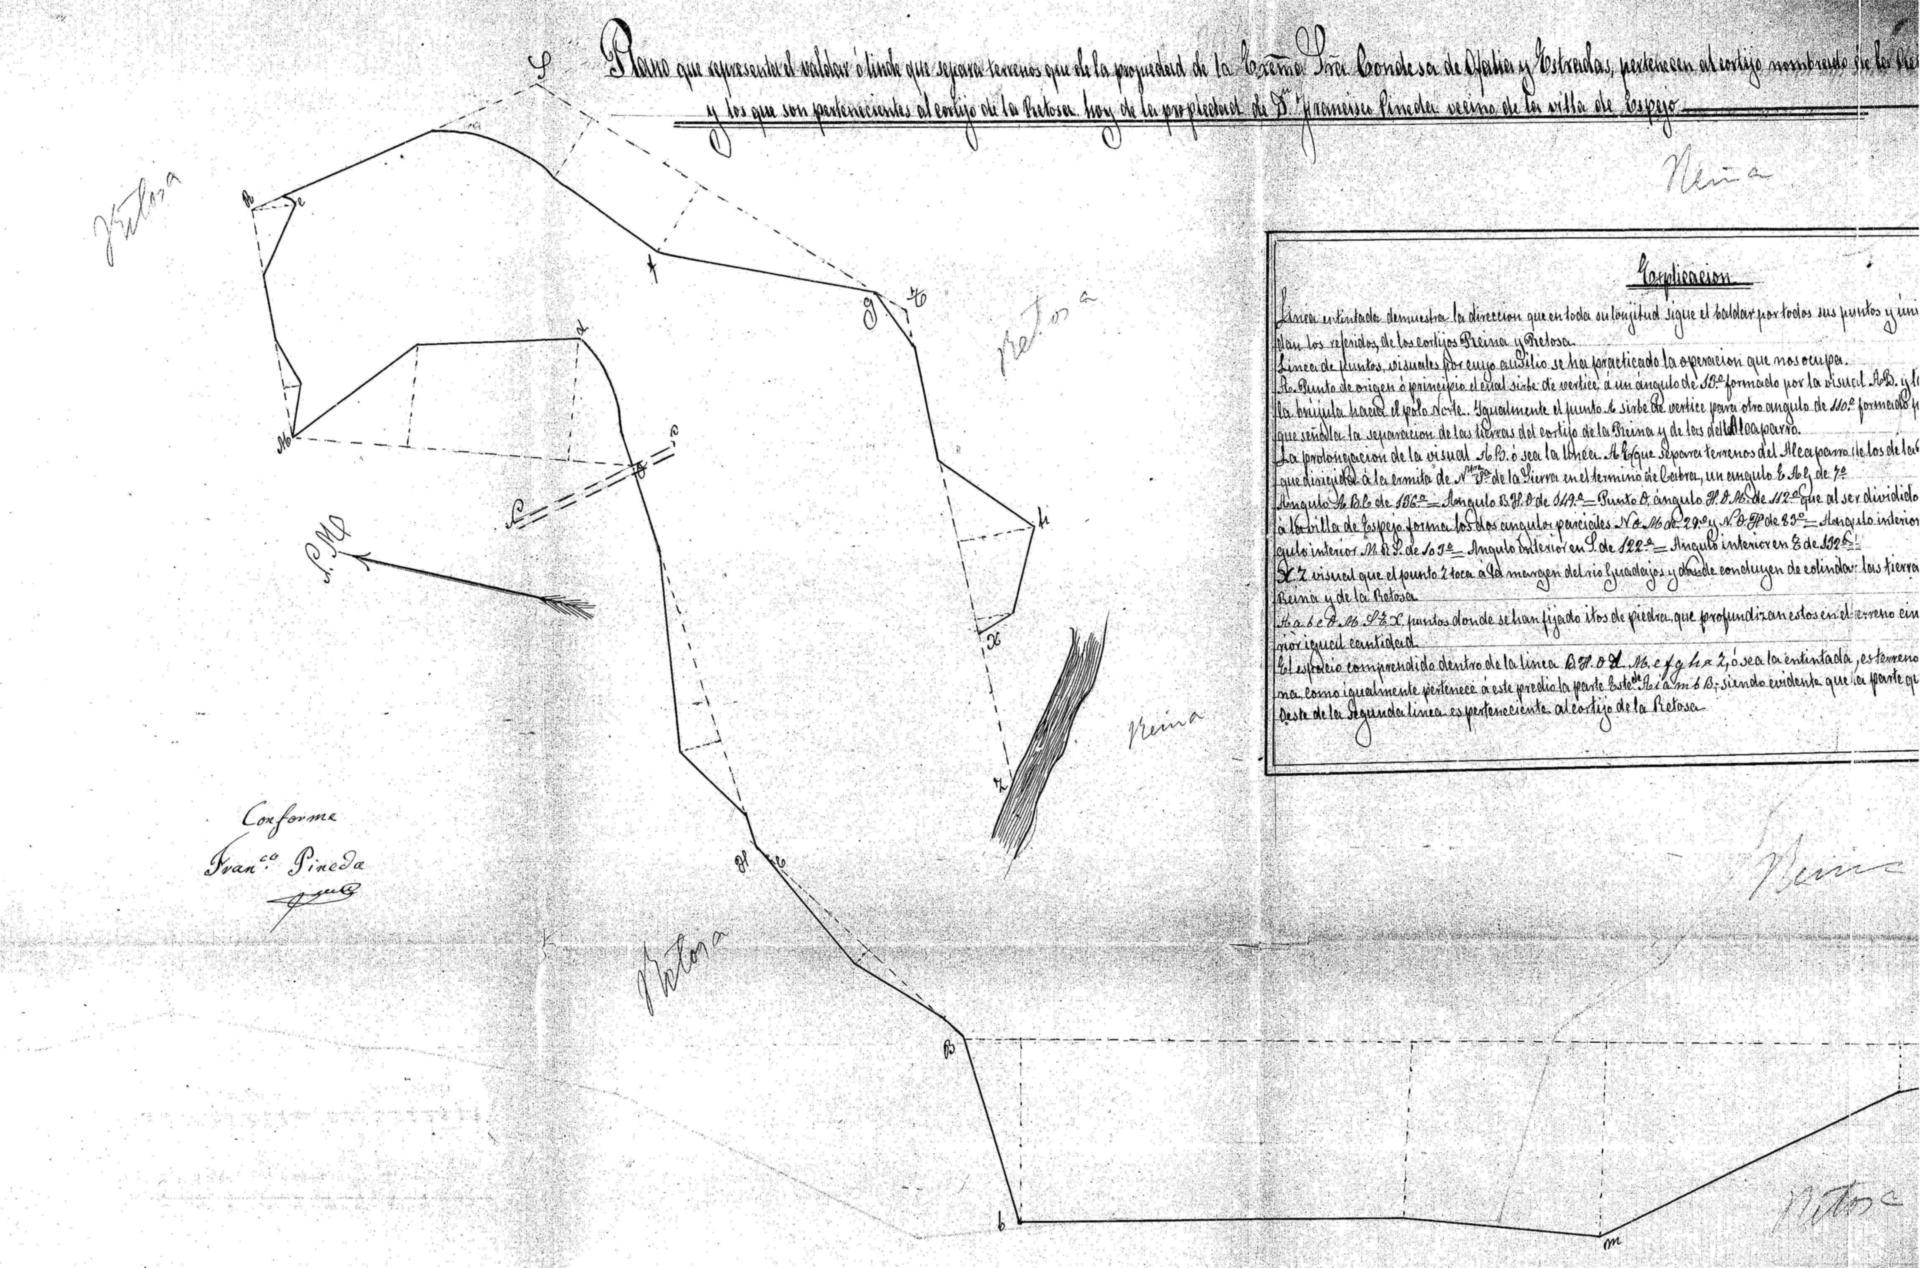 Plano que representa el valdar ó linde que separa terrenos que de la propiedad de la Exema Sra Condesa de Ofalia y Estradas, pertenecen al cortijo nombrado de la
y los que son pertenecientes al cortijo de la Retosa hoy de la propiedad de Dn Francisco Pineda vecino de la villa de Espejo
Reina
Retosa
S
R
e
f
g
Retosa
d
M
N
P
N. M.
h
X
Z
Reina
Explicacion
Linea entintada demuestra la direccion que en toda su longitud sigue el baldar por todos sus puntos y
dan los referidos, de los cortijos Reina y Retosa.
Linea de puntos, visuales por cuyo ausilio se ha practicado la operacion que nos ocupa.
A. Punto de origen ó principio el cual sirbe de vertice á un ángulo de 18º formado por la visual AB. y
la brujula hacia el polo Norte. Igualmente el punto A sirbe de vertice para otro angulo de 110º formado
que señala la separacion de las tierras del cortijo de la Reina y de las del Alcaparro.
La prolongacion de la visual AB. ó sea la linea que separa terrenos del Alcaparro de los de la
que dirigida á la ermita de Ntra Sra de la Sierra en el termino de Cabra, un angulo de 7º
Angulo A.B.C de 156º = Angulo B.H.O de = Punto O. ángulo H.O.M. de 112º que al ser dividido
á la villa de Espejo forma los dos angulos parciales N O M de 29º y N. O H de 83º = Angulo interior
gulo interior M.R.S. de 103º = Angulo interior en S. de 122º = Angulo interior en
X Z visual que el punto Z toca á la margen del rio Guadajos y donde concluyen de colindar las tierra
Reina y de la Retosa
puntos donde se han fijado itos de piedra, que profundizan estos en el terreno
rior igual cantidad.
El espacio comprendido dentro de la linea B.H.O d. M.e f g h x Z, ó sea la entintada, es terreno
na, como igualmente pertenece á este predio la parte Este de siendo evidente que la parte
Oeste de la segunda linea es perteneciente al cortijo de la Retosa
Conforme
Franco. Pineda
H
Reina
Retosa
B
b
m
Retosa